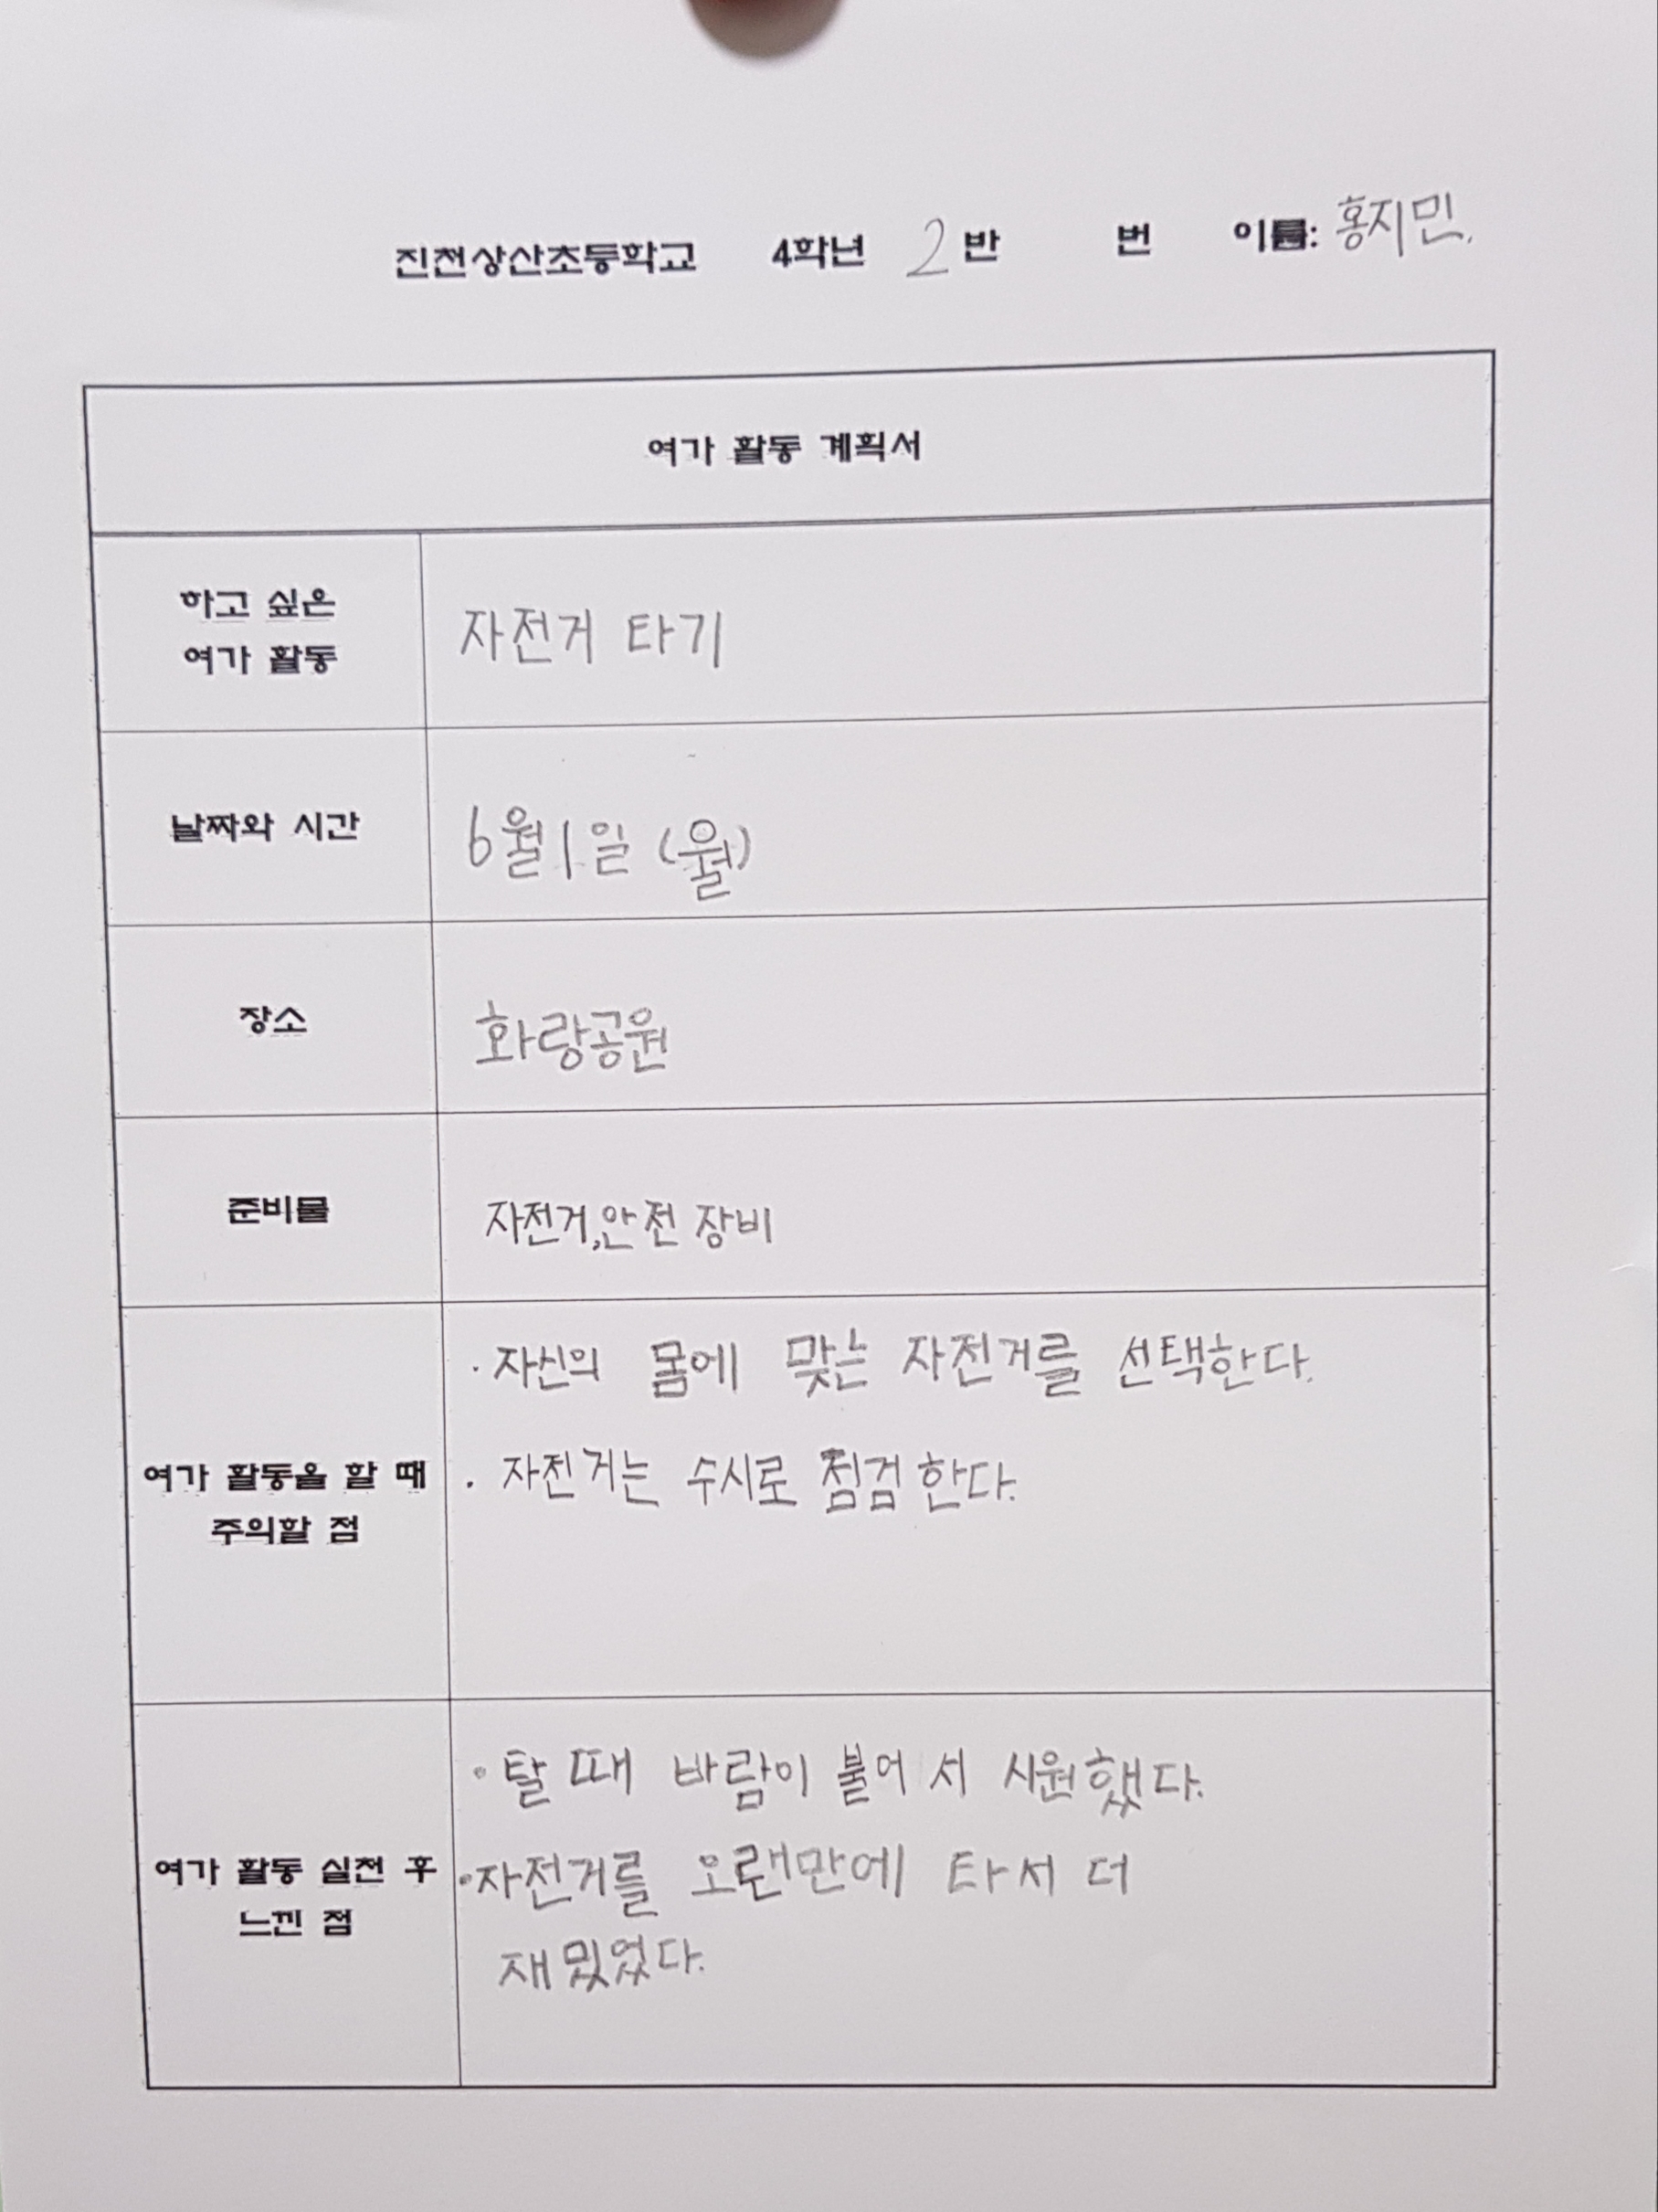 진천상산초등학교 4학년 2반 번 이름: 홍지민.
여가 활동 계획서
하고 싶은
여가 활동
자전거 타기
날짜와 시간
6월 1일 (월)
장소
화랑공원
준비물
자전거, 안전 장비
여가 활동을 할 때
주의할 점
· 자신의 몸에 맞는 자전거를 선택한다.
· 자전거는 수시로 점검한다.
여가 활동 실천 후
느낀 점
· 탈 때 바람이 불어서 시원했다.
· 자전거를 오랜만에 타서 더
재밌었다.